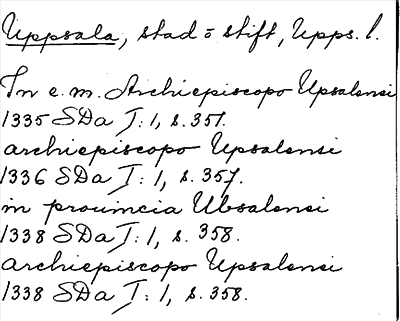 Uppsala, stad o stift, Upps. l.
In e. m. Archiepiscopo Upsalensi
1335 SDa I: 1, s. 351.
archiepiscopo Upsalensi
1336 SDa I: 1, s. 357.
in prouincia Ubsalensi
1338 SDa I: 1, s. 358.
archiepiscopo Upsalensi
1338 SDa I: 1, s. 358.